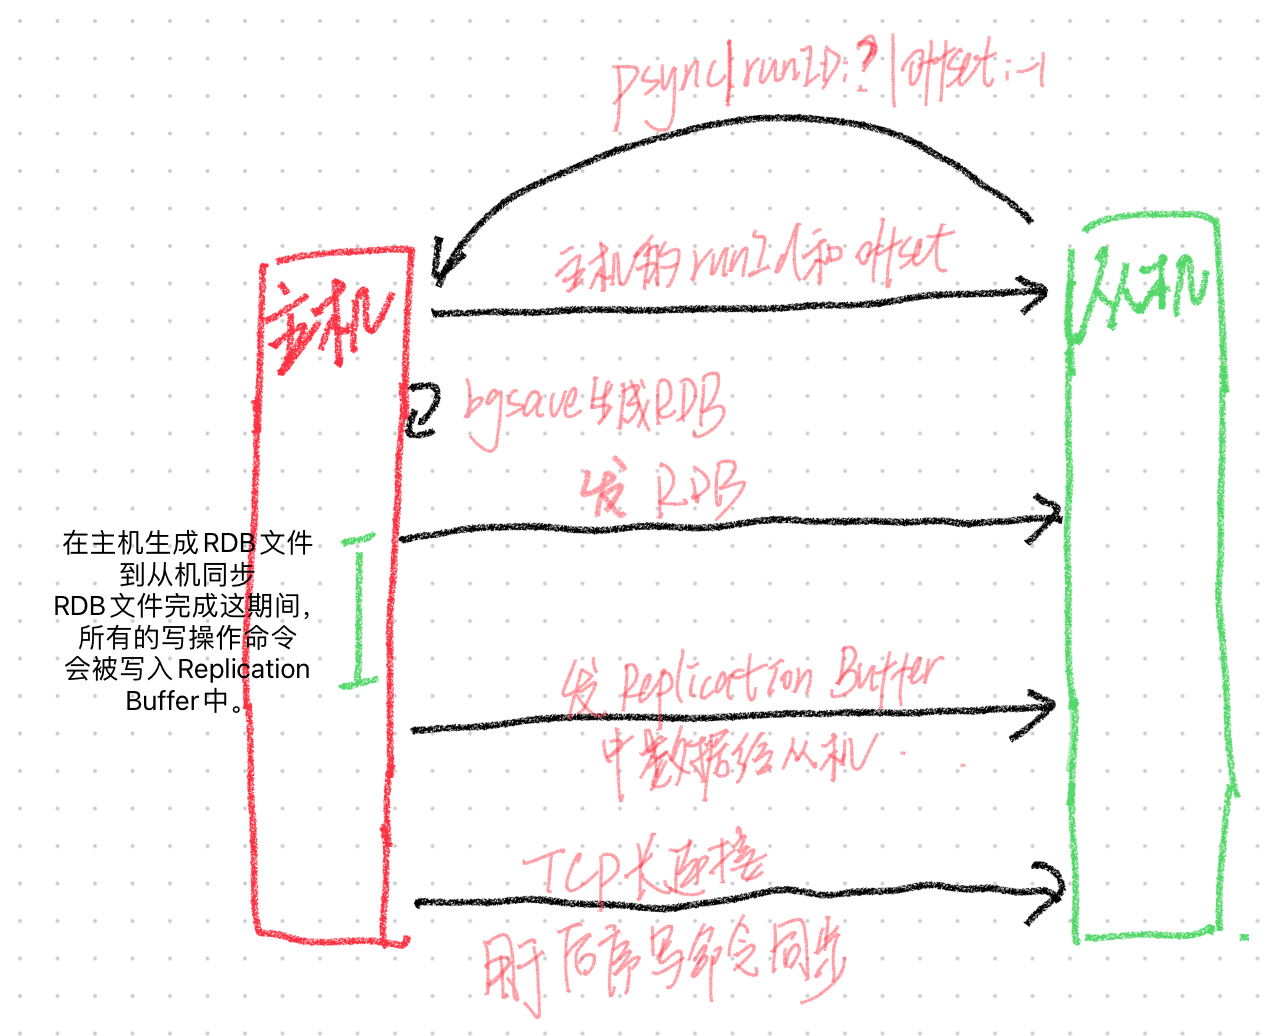 psync|runID:?|offset:-1
主机的runId和offset
主机
从机
bgsave生成RDB
发 RDB
在主机生成RDB文件
到从机同步
RDB文件完成这期间，
所有的写操作命令
会被写入Replication
Buffer中。
发 Replication Buffer
中数据给从机
TCP长连接
用于后序写命令同步